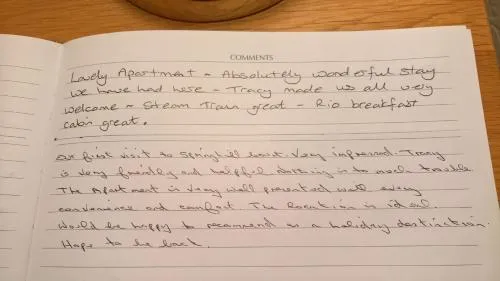 COMMENTS
Lovely Apartment ~ Absolutely wonderful stay
we have had here - Tracy made us all very
welcome ~ Steam Train great - Rio breakfast
cabin great.
Our first visit to Springhill Court. Very impressed. Tracy
is very friendly and helpful nothing is to much trouble.
The Apartment is very well presented with every
convenience and comfort. The location is ideal.
Would be happy to recommend as a holiday destination.
Hope to be back.